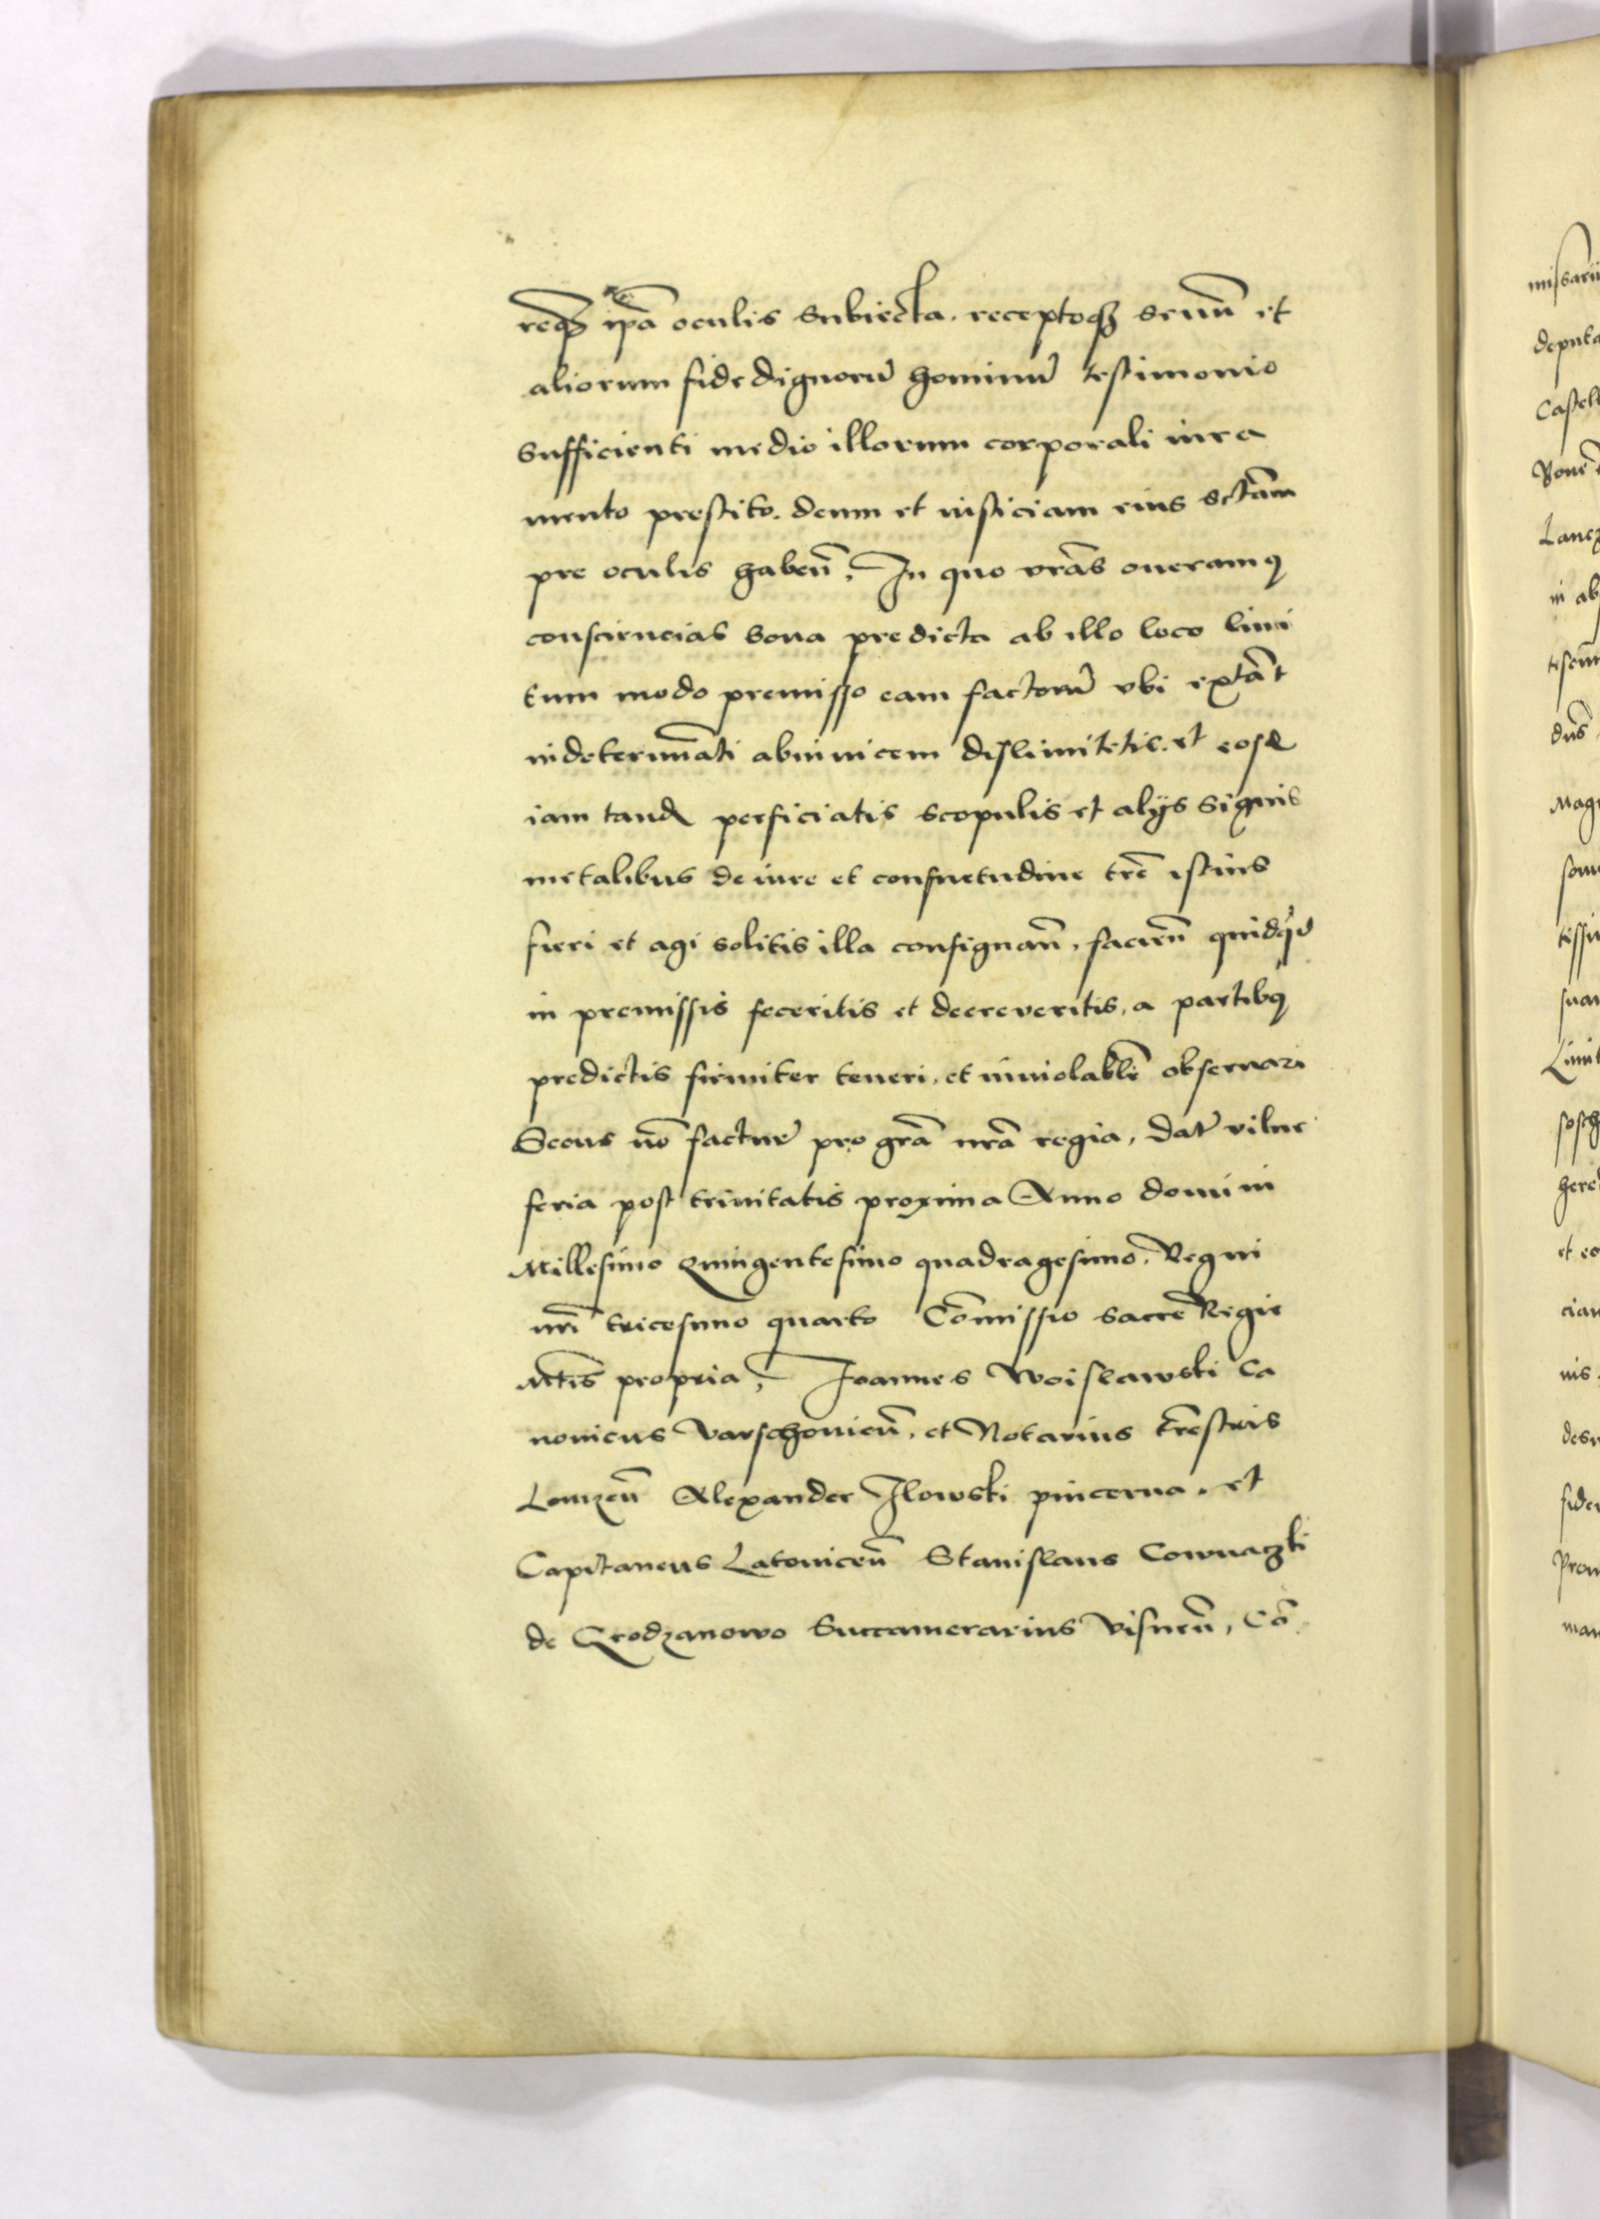 reqȝ ip̄a oculis subiecta. receptoqȝ senū et
aliorum fide dignorū hominū testimonio
sufficienti medio illorum corporali iura
mento prestito. deum et iusticiam eius sctām
pre oculis habeñ, In quo vrās oneramꝰ
consciencias bona predicta ab illo loco limi
tum modo premisso eam factorū vbi extāt
indetermīati abinuicem dislimitetis. et eosd
iam tand perficiatis scopulis et alijs signis
metalibus de iure et consuetudine trē istius
fieri et agi solitis illa consignañ, facieñ quidqͥd
in premissis feceritis et decreveritis, a partibꝰ
predictis firmiter teneri, et inuiolablē obseruari
Secus nō factur̄ pro grā nrā regia, Dat̄ vilne
feria post trinitatis proxima Anno domini
Millesimo Quingentesimo quadragesimo, Regni
nrī tricesimo quarto Cōmissio sacrē Regie
Mtis̄ propria, Joannes Woislawski Ca
nonicus Varschovieñ, et Notarius trēstris
Lomzeñ Alexander Ilowski pincerna. et
Capitaneus Latoviceñ Stanislaus Cownaczki
de Grodzanowo Succamerarius Visneñ, Cō
missarii
deputa
Castell
Lancz
in ab
dn̄s
Mag
tissi
suar
Limit
here
et eo
cian
nis
fide
man